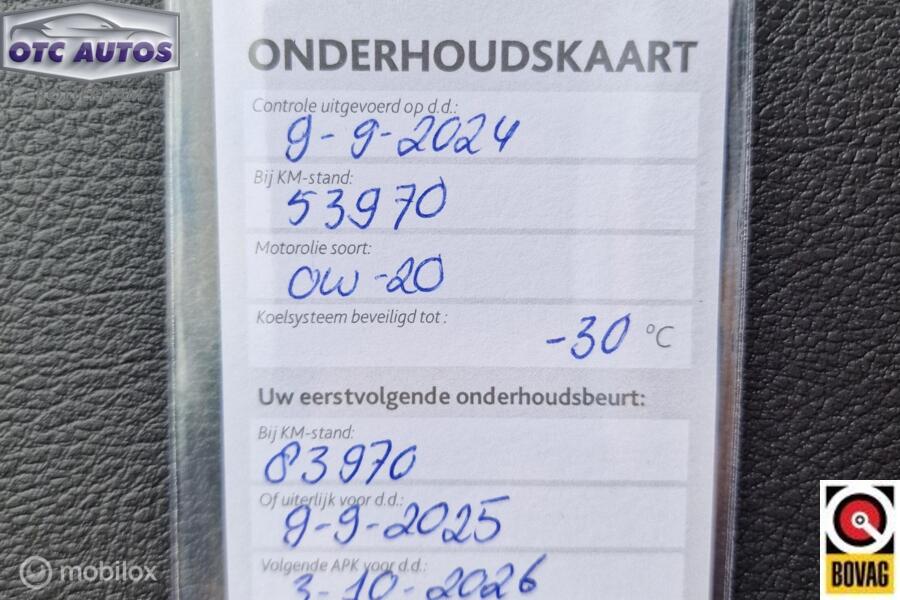 OTC AUTOS
ONDERHOUDSKAART
Controle uitgevoerd op d.d.:
9-9-2024
Bij KM-stand:
53970
Motorolie soort:
0W-20
Koelsysteem beveiligd tot :
-30 °C
Uw eerstvolgende onderhoudsbeurt:
Bij KM-stand:
83970
Of uiterlijk voor d.d.:
9-9-2025
Volgende APK voor d.d.:
3-10-2026
mobilox
BOVAG